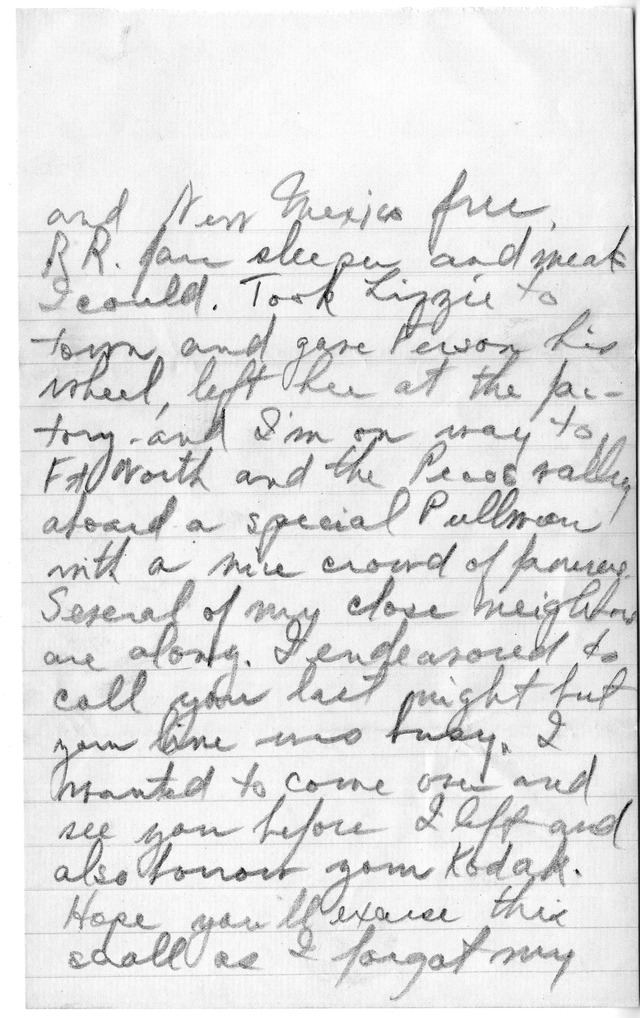 and New Mexico free,
R R. fare sleeper and meals
I could. Took Lizzie to
town and gave Person his
wheel, left her at the fac-
tory - and I'm on way to
Ft Worth and the Pecos valley
aboard a special Pullman
with a nice crowd of
Several of my close neighbors
are along. I endeavored to
call you last night but
your line was busy. I
wanted to come over and
see you before I left and
also borrow your Kodak.
Hope you'll excuse this
scall as I forgot my